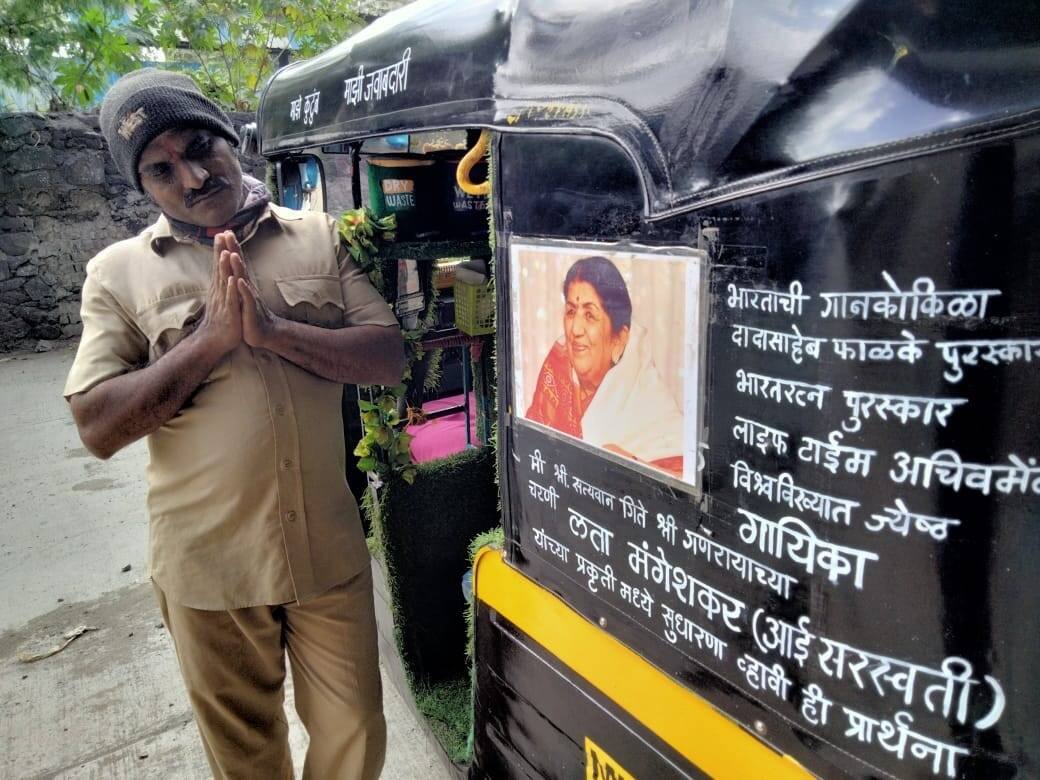 माझे कुटुंब
माझी जवाबदारी
DRY
WASTE
WASTE
भारताची गानकोकिळा
दादासाहेब फाळके पुरस्कार
भारतरत्न पुरस्कार
लाइफ टाईम अचिवमेंट
विश्वविख्यात ज्येष्ठ
गायिका
मी श्री. सत्यवान गिते श्री गणरायाच्या
चरणी लता मंगेशकर (आई सरस्वती)
यांच्या प्रकृती मध्ये सुधारणा व्हावी ही प्रार्थना